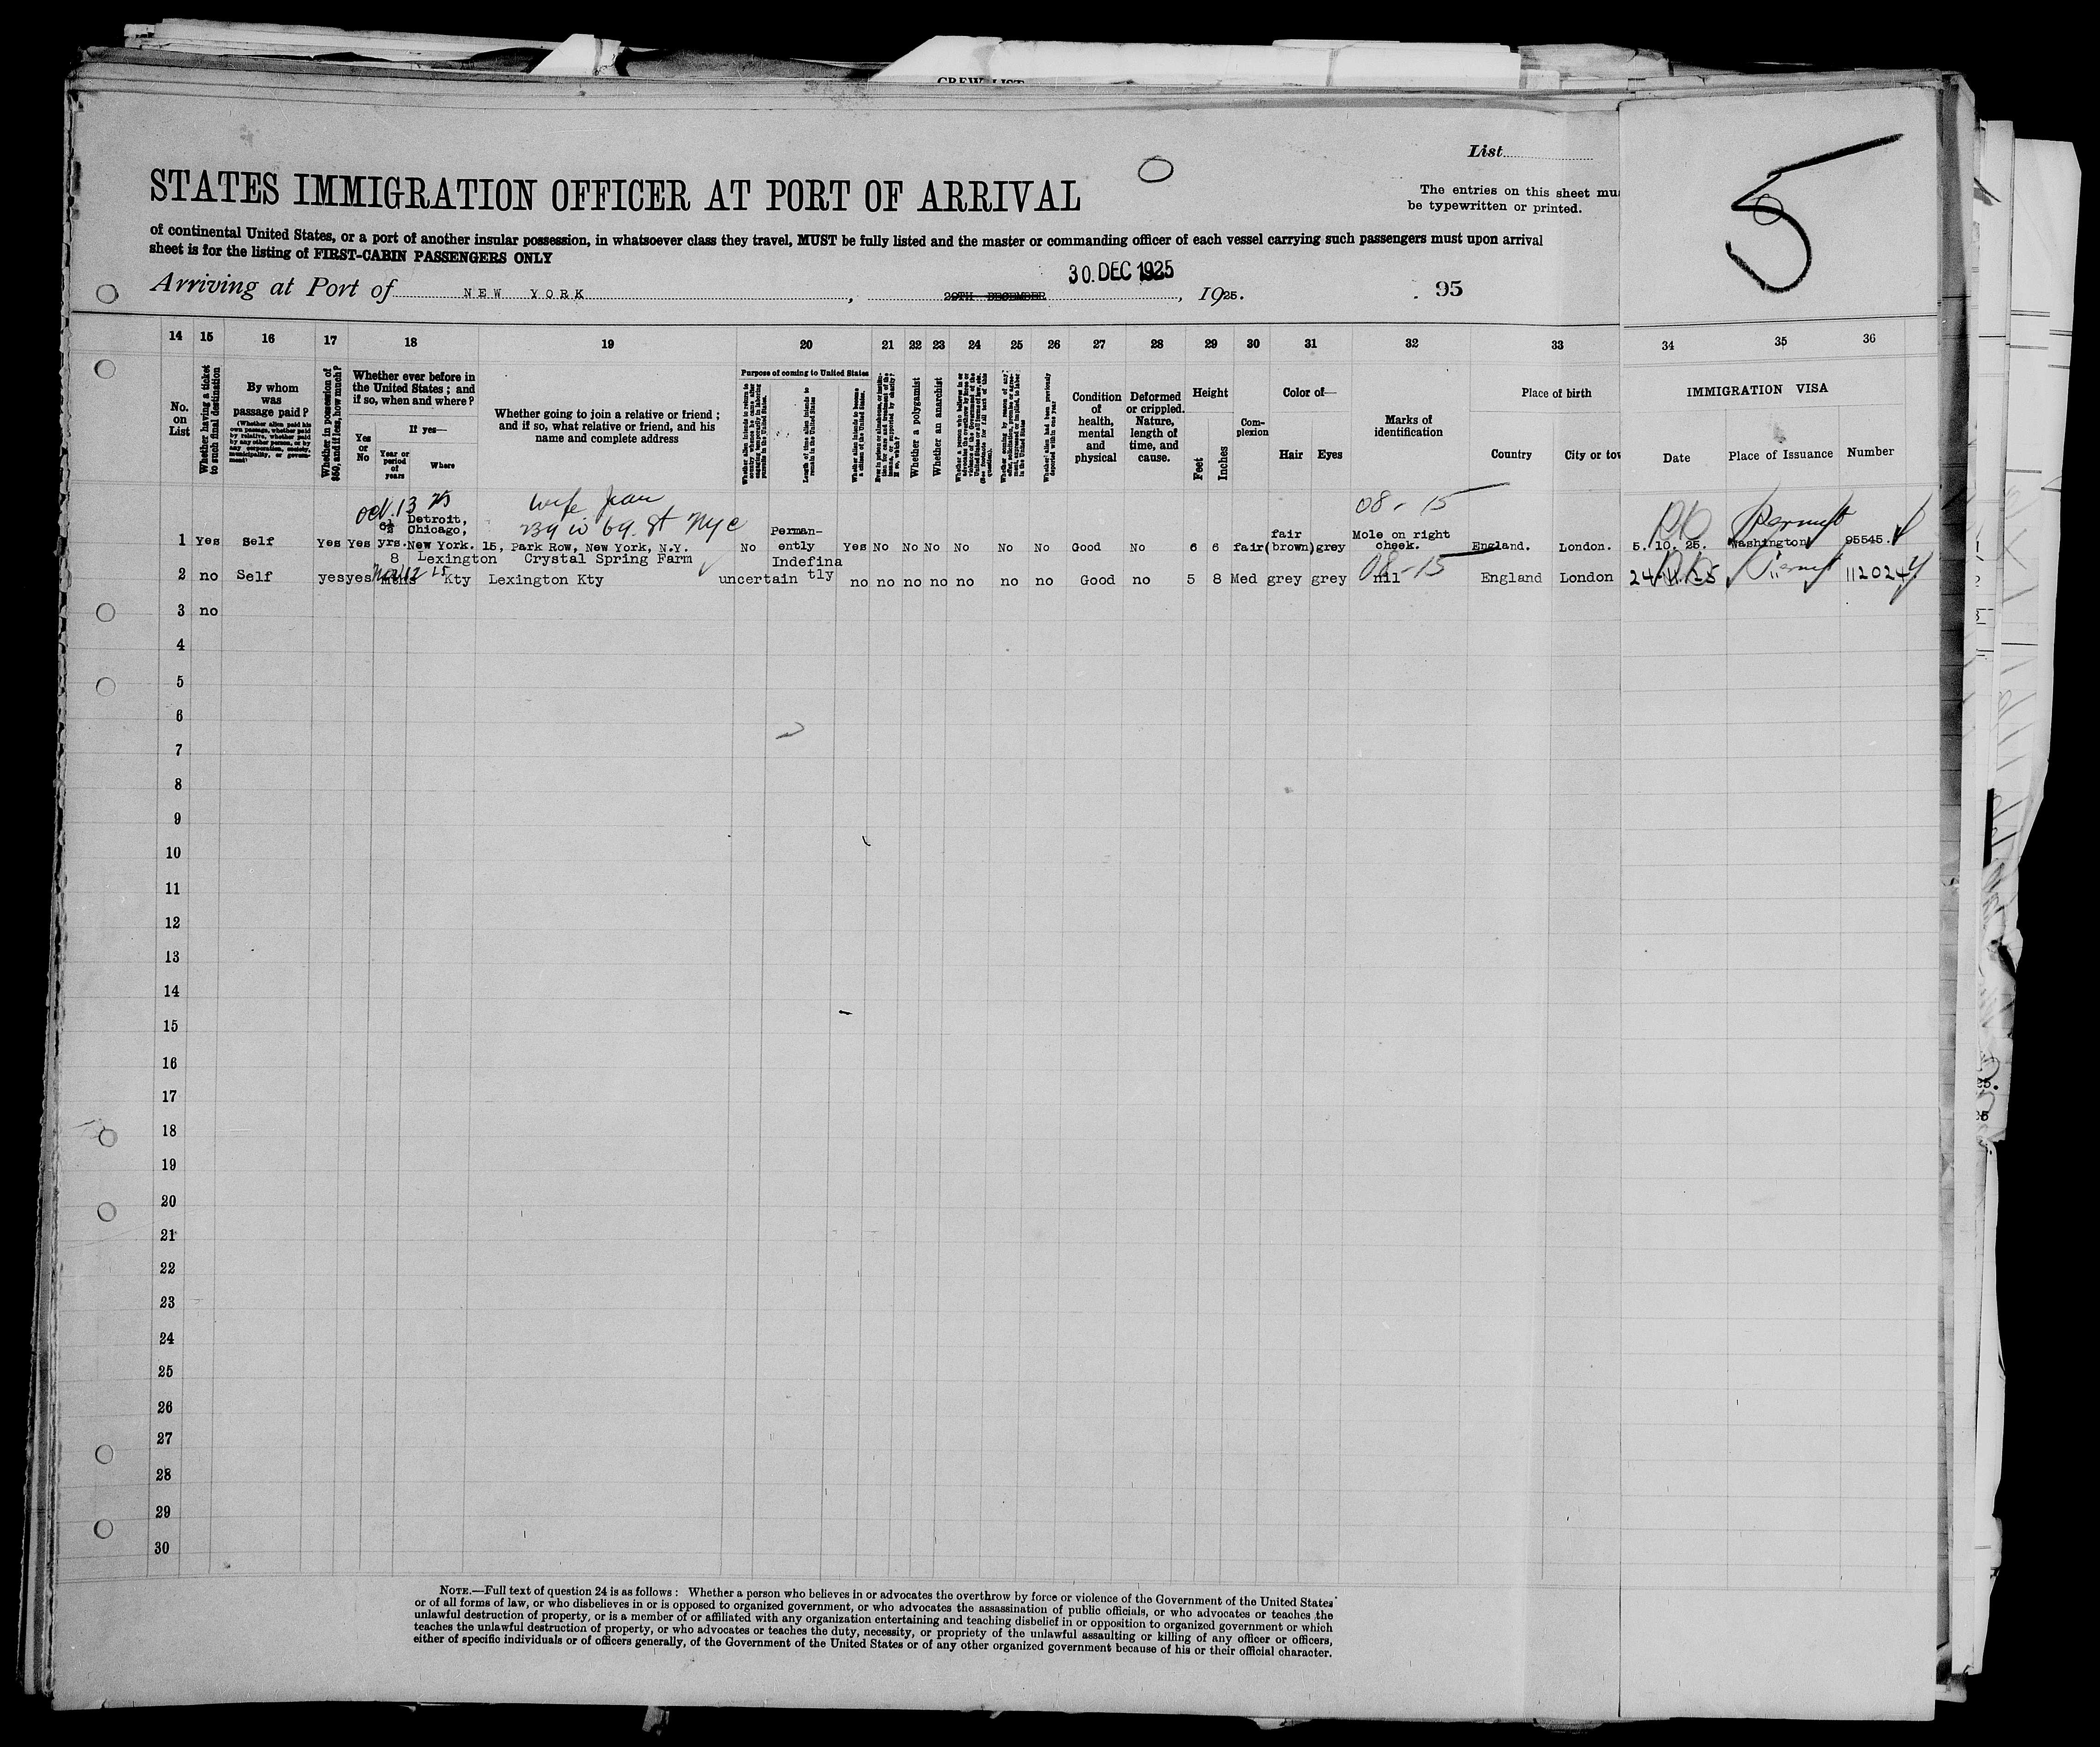 CREW LIST
List
STATES IMMIGRATION OFFICER AT PORT OF ARRIVAL
The entries on this sheet mu
be typewritten or printed.
5
of continental United States, or a port of another insular possession, in whatsoever class they travel, MUST be fully listed and the master or commanding officer of each vessel carrying such passengers must upon arrival
sheet is for the listing of FIRST-CABIN PASSENGERS ONLY
30. DEC 1925
Arriving at Port of NEW YORK, 29TH DECEMBER, 1925. 95
14 15 16 17 18 19 20 21 22 23 24 25 26 27 28 29 30 31 32 33 34 35 36
No. on List
Whether having a ticket to such final destination
By whom was passage paid?
(Whether alien paid his own passage, whether paid by relative, whether paid by any other person, or by any corporation, society, municipality, or government)
Whether in possession of $50, and if less, how much?
Whether ever before in the United States; and if so, when and where?
Yes or No
If yes—
Year or period of years
Where
Whether going to join a relative or friend; and if so, what relative or friend, and his name and complete address
Purpose of coming to United States
Length of time alien intends to remain in the United States
Whether alien intends to become a citizen of the United States.
Whether a polygamist
Whether an anarchist
Whether alien had been previously deported within one year
Condition of health, mental and physical
Deformed or crippled. Nature, length of time, and cause.
Height
Feet
Inches
Complexion
Color of—
Hair
Eyes
Marks of identification
Place of birth
Country
City or tow
IMMIGRATION VISA
Date
Place of Issuance
Number
Oct. 13 25 wife Jean 08-15
Detroit, 239 W 69. St NYC Permit
Chicago, Perman- fair Mole on right
1 Yes Self Yes Yes yrs. New York. 15, Park Row, New York, N.Y. No ently Yes No No No No No No Good No 6 6 fair (brown) grey cheek. England. London. 5. 10. 25. Washington 95545.
8 Lexington Crystal Spring Farm Indefina 08-15 Permit
2 no Self yes yes Kty Lexington Kty uncertain tly no no no no no no no Good no 5 8 Med grey grey nil England London 24-11-25 " 112024
3 no
4
5
6
7
8
9
10
11
12
13
14
15
16
17
18
19
20
21
22
23
24
25
26
27
28
29
30
NOTE.—Full text of question 24 is as follows: Whether a person who believes in or advocates the overthrow by force or violence of the Government of the United States
or of all forms of law, or who disbelieves in or is opposed to organized government, or who advocates the assassination of public officials, or who advocates or teaches the
unlawful destruction of property, or is a member of or affiliated with any organization entertaining and teaching disbelief in or opposition to organized government or which
teaches the unlawful destruction of property, or who advocates or teaches the duty, necessity, or propriety of the unlawful assaulting or killing of any officer or officers,
either of specific individuals or of officers generally, of the Government of the United States or of any other organized government because of his or their official character.